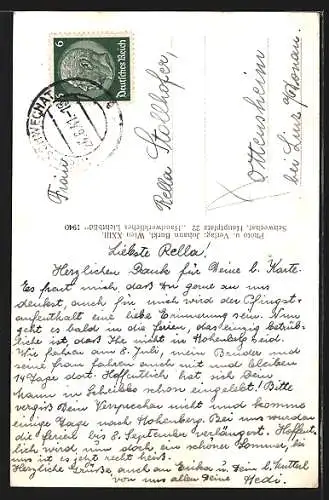 6
Deutsches Reich
SCHWECHAT
Fräulein
Rella Stellhofer,
Ottensheim
bei Linz a/Donau.
Photo u. Verlag: Johann Burkl, Wien XXIII.
Schwechat, Hauptplatz 22 „Handwerkliches Lichtbild“ 1940
Liebste Rella!
Herzlichen Dank für Deine l. Karte.
Es freut mich, daß Du gerne zu uns
denkst, auch für mich wird der Pfingst-
aufenthalt eine liebe Erinnerung sein. Nun
geht es bald in die Ferien, das einzig betrüb-
liche ist, daß Ihr nicht in Hohenberg seid.
Wir fahren am 8. Juli, mein Bruder und
seine Frau fahren auch mit und bleiben
14 Tage dort. Hoffentlich hat sich Dein
Mann in Scheibbs schon eingelebt! Bitte
vergiß Dein Versprechen nicht und komme
einige Tage nach Hohenberg. Bei uns wurden
die Ferien bis 8. September verlängert. Hoffent-
lich wird nun doch ein schöner Sommer, bei
uns ist es jetzt recht heiß.
Herzliche Grüsse, auch an Erika u. Dein l. Mutterl
von uns allen Deine Hedi.